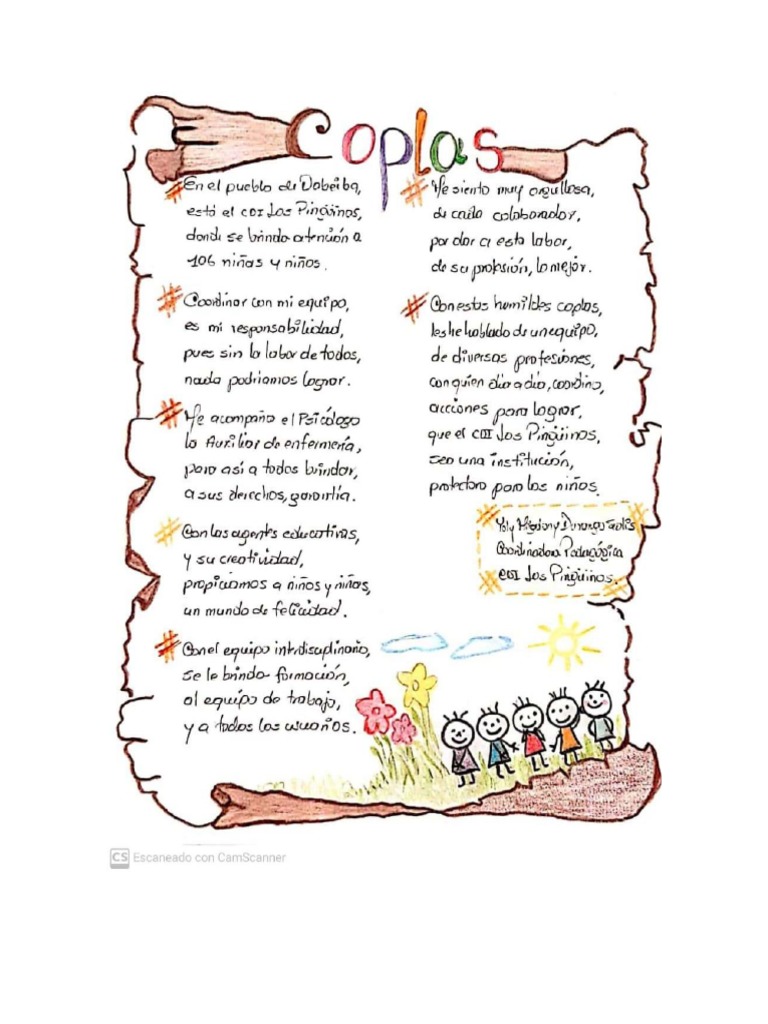 Coplas
# En el pueblo de Dabeiba,
está el CDI Los Pingüinos,
donde se brinda atención a
106 niñas y niños.
# Coordinar con mi equipo,
es mi responsabilidad,
pues sin la labor de todos,
nada podríamos lograr.
# Me acompaña el Psicólogo
la Auxiliar de enfermería,
para así a todos brindar,
a sus derechos, garantía.
# Con las agentes educativas,
y su creatividad,
propiciamos a niños y niñas,
un mundo de felicidad.
# Con el equipo interdisciplinario,
se le brinda formación,
al equipo de trabajo,
y a todos los usuarios.
# Me siento muy orgullosa,
de cada colaborador,
por dar a esta labor,
de su profesión, lo mejor.
# Con estas humildes coplas,
les he hablado de un equipo,
de diversas profesiones,
con quien día a día, coordino,
acciones para lograr,
que el CDI Los Pingüinos,
sea una institución,
protectora para los niños.
Durango
Coordinadora Pedagógica
CDI Los Pingüinos.
CS Escaneado con CamScanner